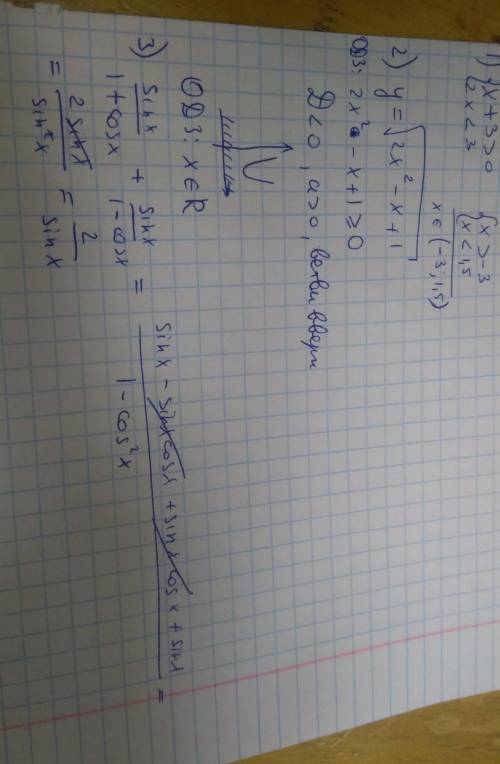 1) {x + 3 > 0   {x > -3
{2x < 3   {x < 1,5
x ∈ (-3; 1,5)
2) y = √2x² - x + 1
ОДЗ: 2x² - x + 1 ≥ 0
D < 0, a > 0, ветви вверх
ОДЗ: x ∈ R
3) sinx/(1 + cosx) + sinx/(1 - cosx) = (sinx - sinxcosx + sinxcosx + sinx)/(1 - cos²x) =
= 2sinx/sin²x = 2/sinx